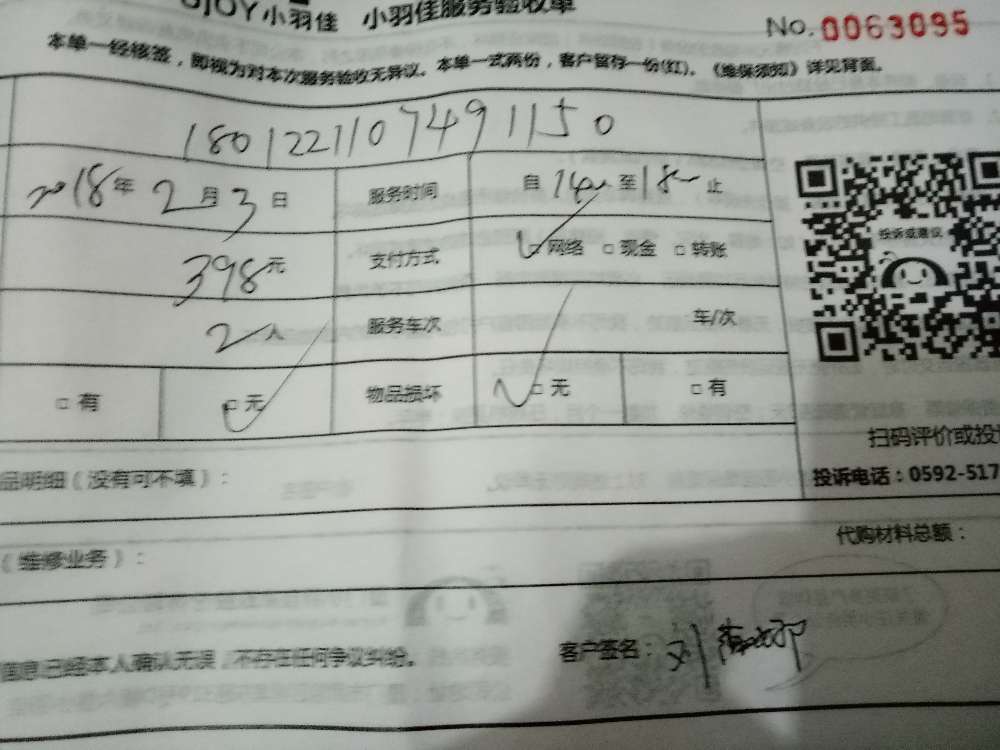 OJOY小羽佳 小羽佳服务验收单
No. 0063095
本单一经核签，即视为对本次服务验收无异议。本单一式两份，客户留存一份(红)。《维保须知》详见背面。
1801221107491150
2018年2月3日 服务时间 自14 至18 止
398元 支付方式 网络 □现金 □转账
2人 服务车次 车/次
□有 □无 物品损坏 □无 □有
投诉或建议
扫码评价或投
品明细（没有可不填）：
投诉电话：0592-517
代购材料总额：
（维修业务）：
信息已经本人确认无误，不存在任何争议纠纷。 客户签名：刘